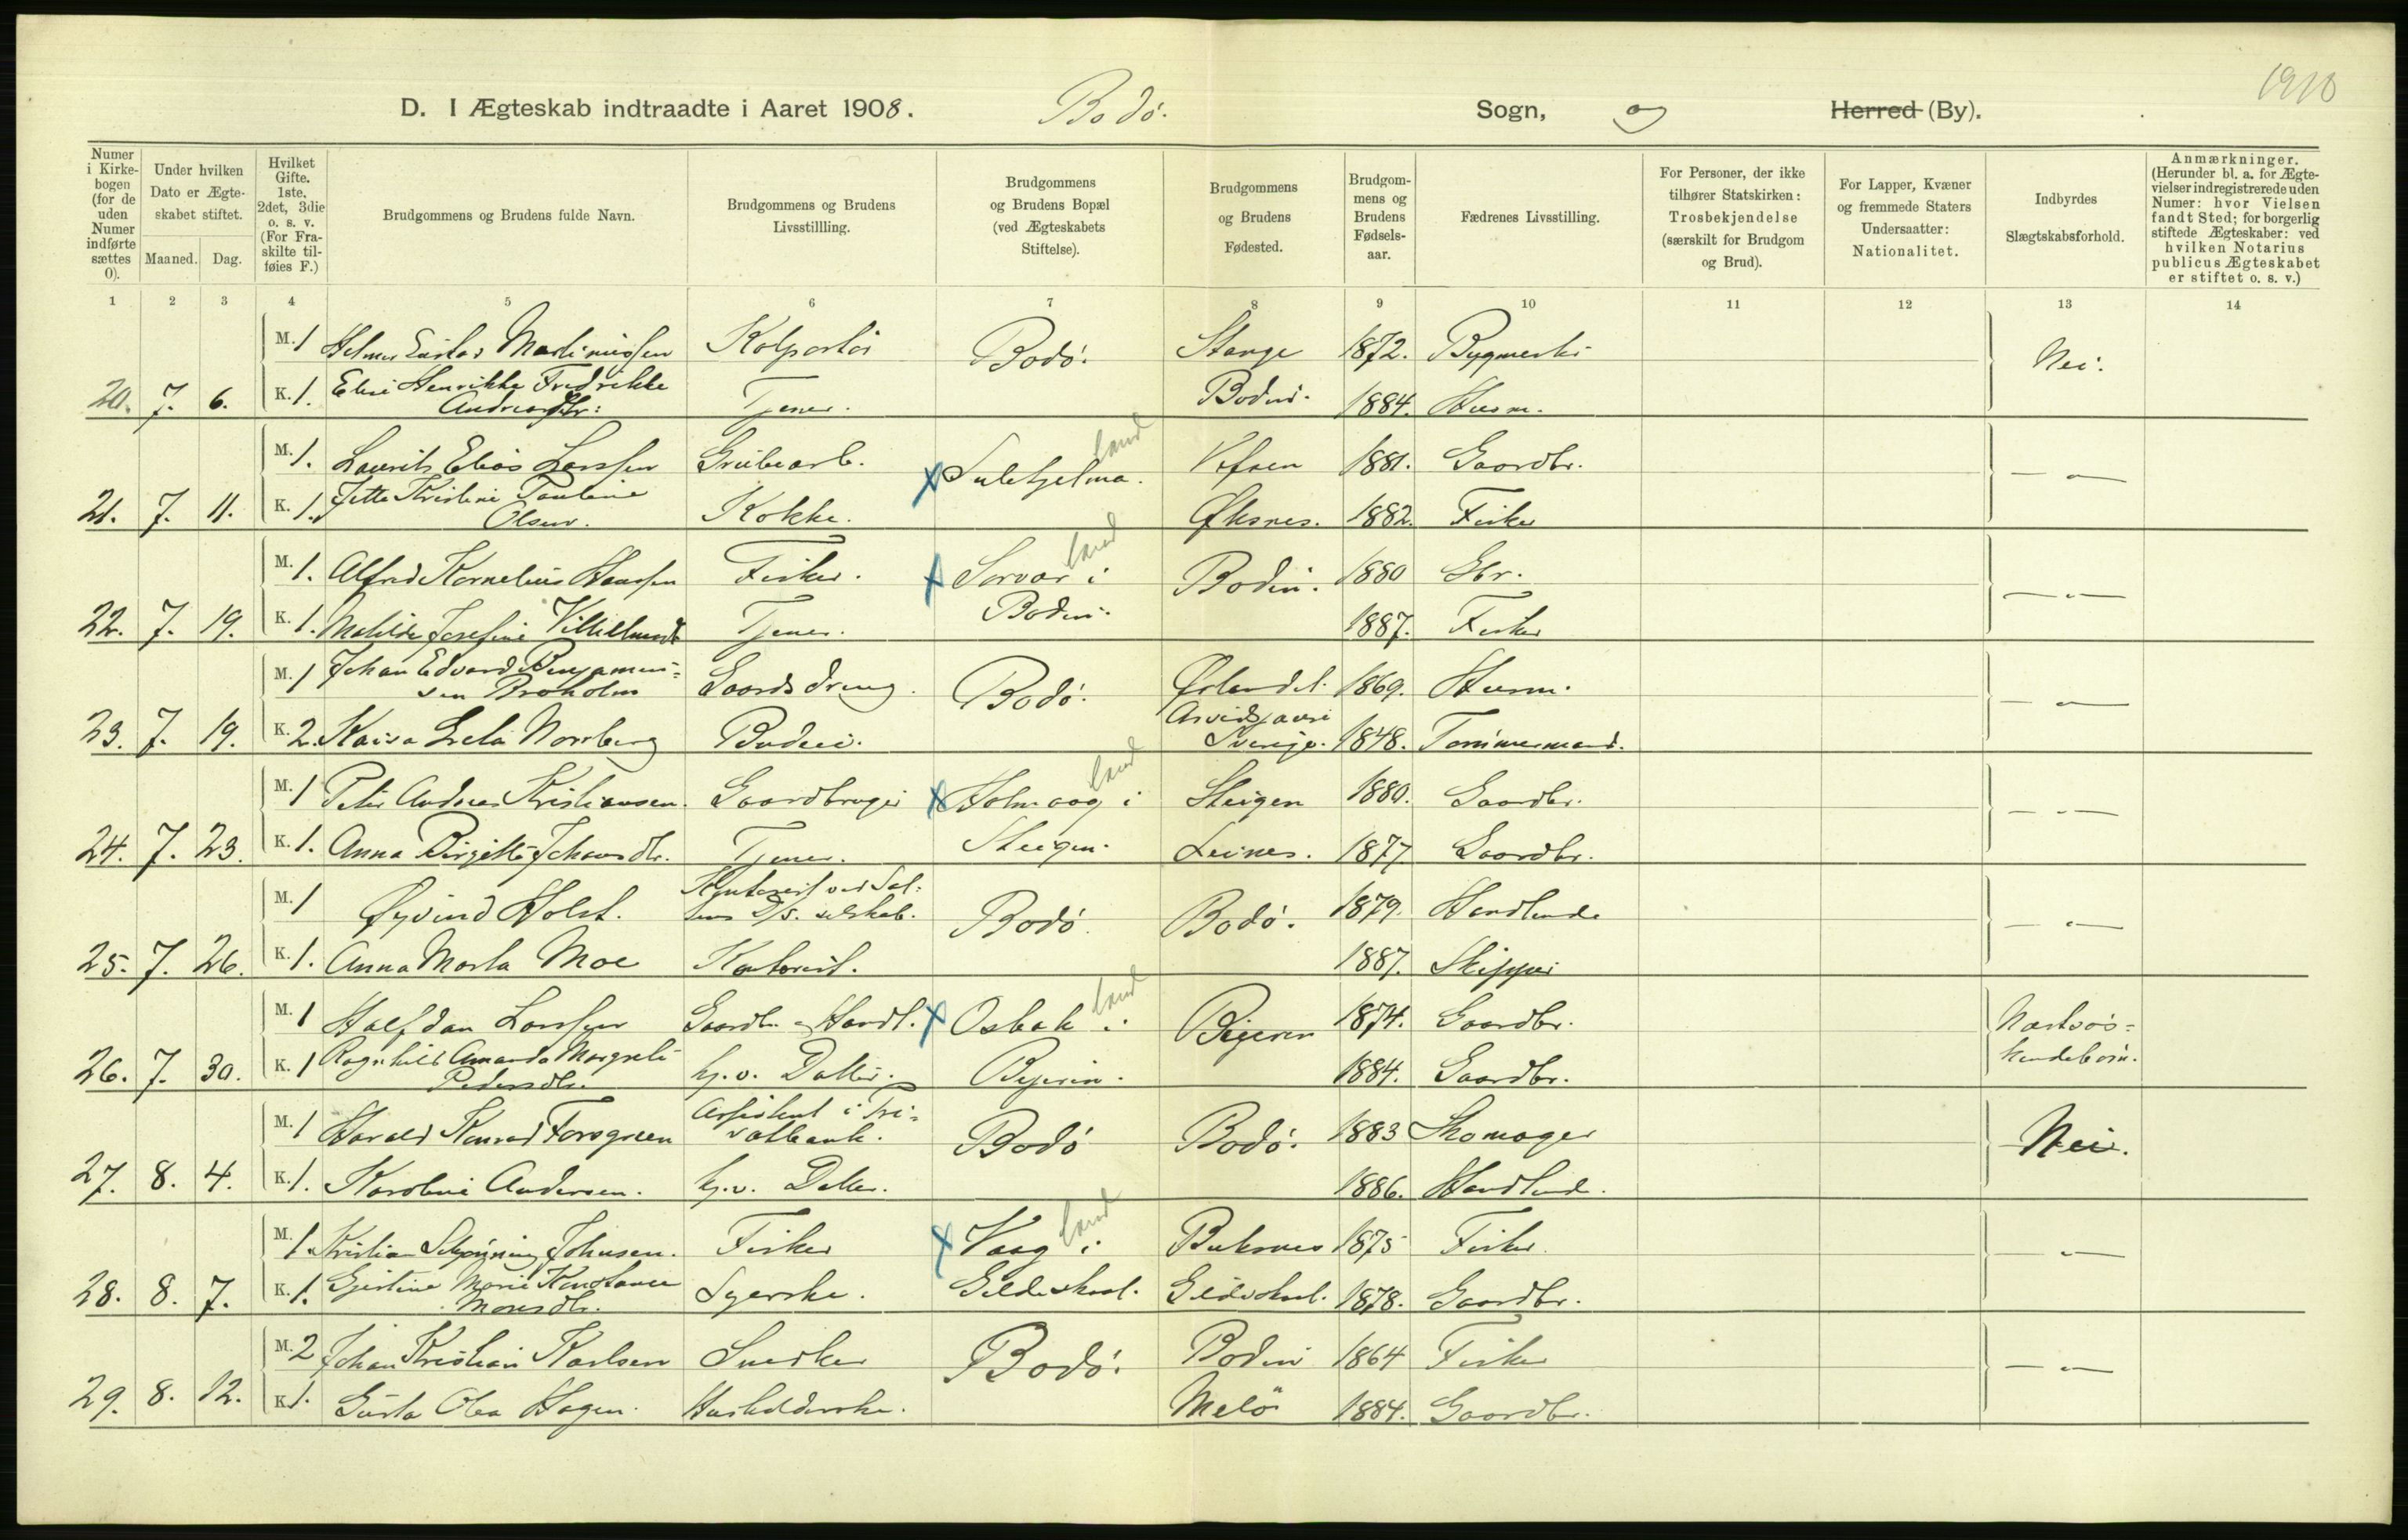 1910
D. I Ægteskab indtraadte i Aaret 1908. Bodö. Sogn, og Herred (By).
Numer i Kirkebogen (for de uden Numer indførte sættes 0).
Under hvilken Dato er Ægteskabet stiftet.
Maaned. Dag.
Hvilket Gifte. 1ste, 2det, 3die o. s. v. (For Fraskilte tilføies F.)
Brudgommens og Brudens fulde Navn.
Brudgommens og Brudens Livsstillling.
Brudgommens og Brudens Bopæl (ved Ægteskabets Stiftelse).
Brudgommens og Brudens Fødested.
Brudgommens og Brudens Fødselsaar.
Fædrenes Livsstilling.
For Personer, der ikke tilhører Statskirken: Trosbekjendelse (særskilt for Brudgom og Brud).
For Lapper, Kvæner og fremmede Staters Undersaatter: Nationalitet.
Indbyrdes Slægtskabsforhold.
Anmærkninger. (Herunder bl. a. for Ægtevielser indregistrerede uden Numer: hvor Vielsen fandt Sted; for borgerlig stiftede Ægteskaber: ved hvilken Notarius publicus Ægteskabet er stiftet o. s. v.)
1 2 3 4 5 6 7 8 9 10 11 12 13 14
M. 1 Martinussen Kolportör Bodö. Stange 1872. Nei.
20. 7. 6. K. 1. Henrikke Fredrikke Tjener. Bodin. 1884. Husm.
M. 1. Laurits Elias Larssen Grubearb. x Sulitjelma. land Vefsen 1881. Gaardbr. — " —
21. 7. 11. K. 1. Jette Kristine Pauline Olsen. Kokke. Øksnes. 1882. Fisker
M. 1. Alfred Kornelius Hanssen Fisker. x Sorvær i Bodin. land Bodin. 1880 Gbr. — " —
22. 7. 19. K. 1. Matilde Josefine Tjener. 1887. Fisker
M. 1 Johan Edvard Benjamin=sen Broholm Gaardsdreng. Bodö. Ørlandet. 1869. Husm. — " —
23. 7. 19. K. 2. Kaisa Greta Norrberg Budeie. Arvidsjauri Sverige. 1848. Tømmermand.
M. 1 Peter Andreas Kristiansen. Gaardbruger x Holmaag i Steigen. land Steigen 1880. Gaardbr. — " —
24. 7. 23. K. 1. Anna Birgitte Johansdtr. Tjener. Leines. 1877 Gaardbr.
M. 1 Øyvind Holst. Kontorist ved Sal=tens D/S. selskab. Bodö. Bodö. 1879. Handlende — " —
25. 7. 26. K. 1. Anna Marta Moe Kontorist. 1887. Skipper
M. 1 Halfdan Larssen Gaardbr. og Handl. x Osbak i Bejeren. land Bejeren 1874. Gaardbr. Næstsøs=kendebørn.
26. 7. 30. K. 1 Ragnhild Amanda Margrete Pedersdtr. hj.v. Datter. 1884. Gaardbr.
M. 1 Harald Konrad Forsgreen Assistent i Pri=vatbank. Bodö Bodö. 1883 Skomager Nei.
27. 8. 4. K. 1. Karoline Andersen. hj.v. Datter. 1886. Handlende.
M. 1. Kristian Johnsen. Fisker x Vaag i Gildeskaal. land Buksnes 1875 Fisker. — " —
28. 8. 7. K. 1. Gjertine Marie Konstance Monsdtr. Syerske. Gildeskaal. 1878. Gaardbr.
M. 2 Johan Kristian Karlsen Snedker Bodö. Bodin 1864 Fisker — " —
29. 8. 12. K. 1. Gusta Olea Hagen. Husholderske. Melö 1884. Gaardbr.